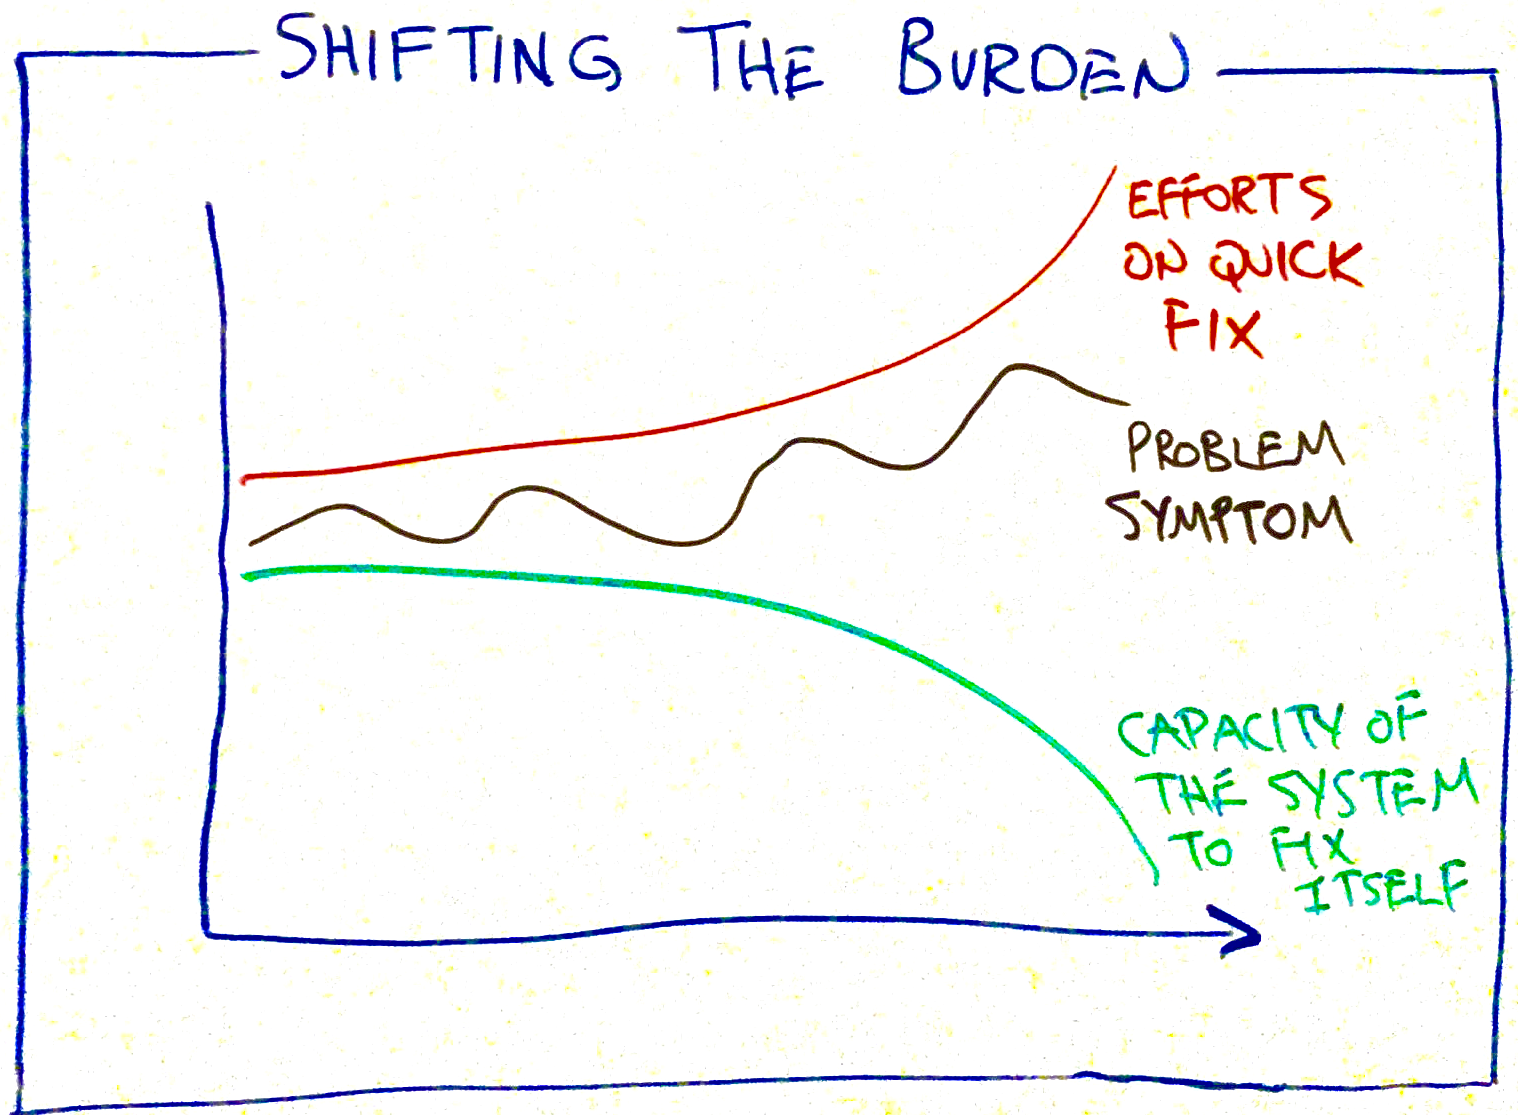 SHIFTING THE BURDEN
EFFORTS
ON QUICK
FIX
PROBLEM
SYMPTOM
CAPACITY OF
THE SYSTEM
TO FIX
ITSELF